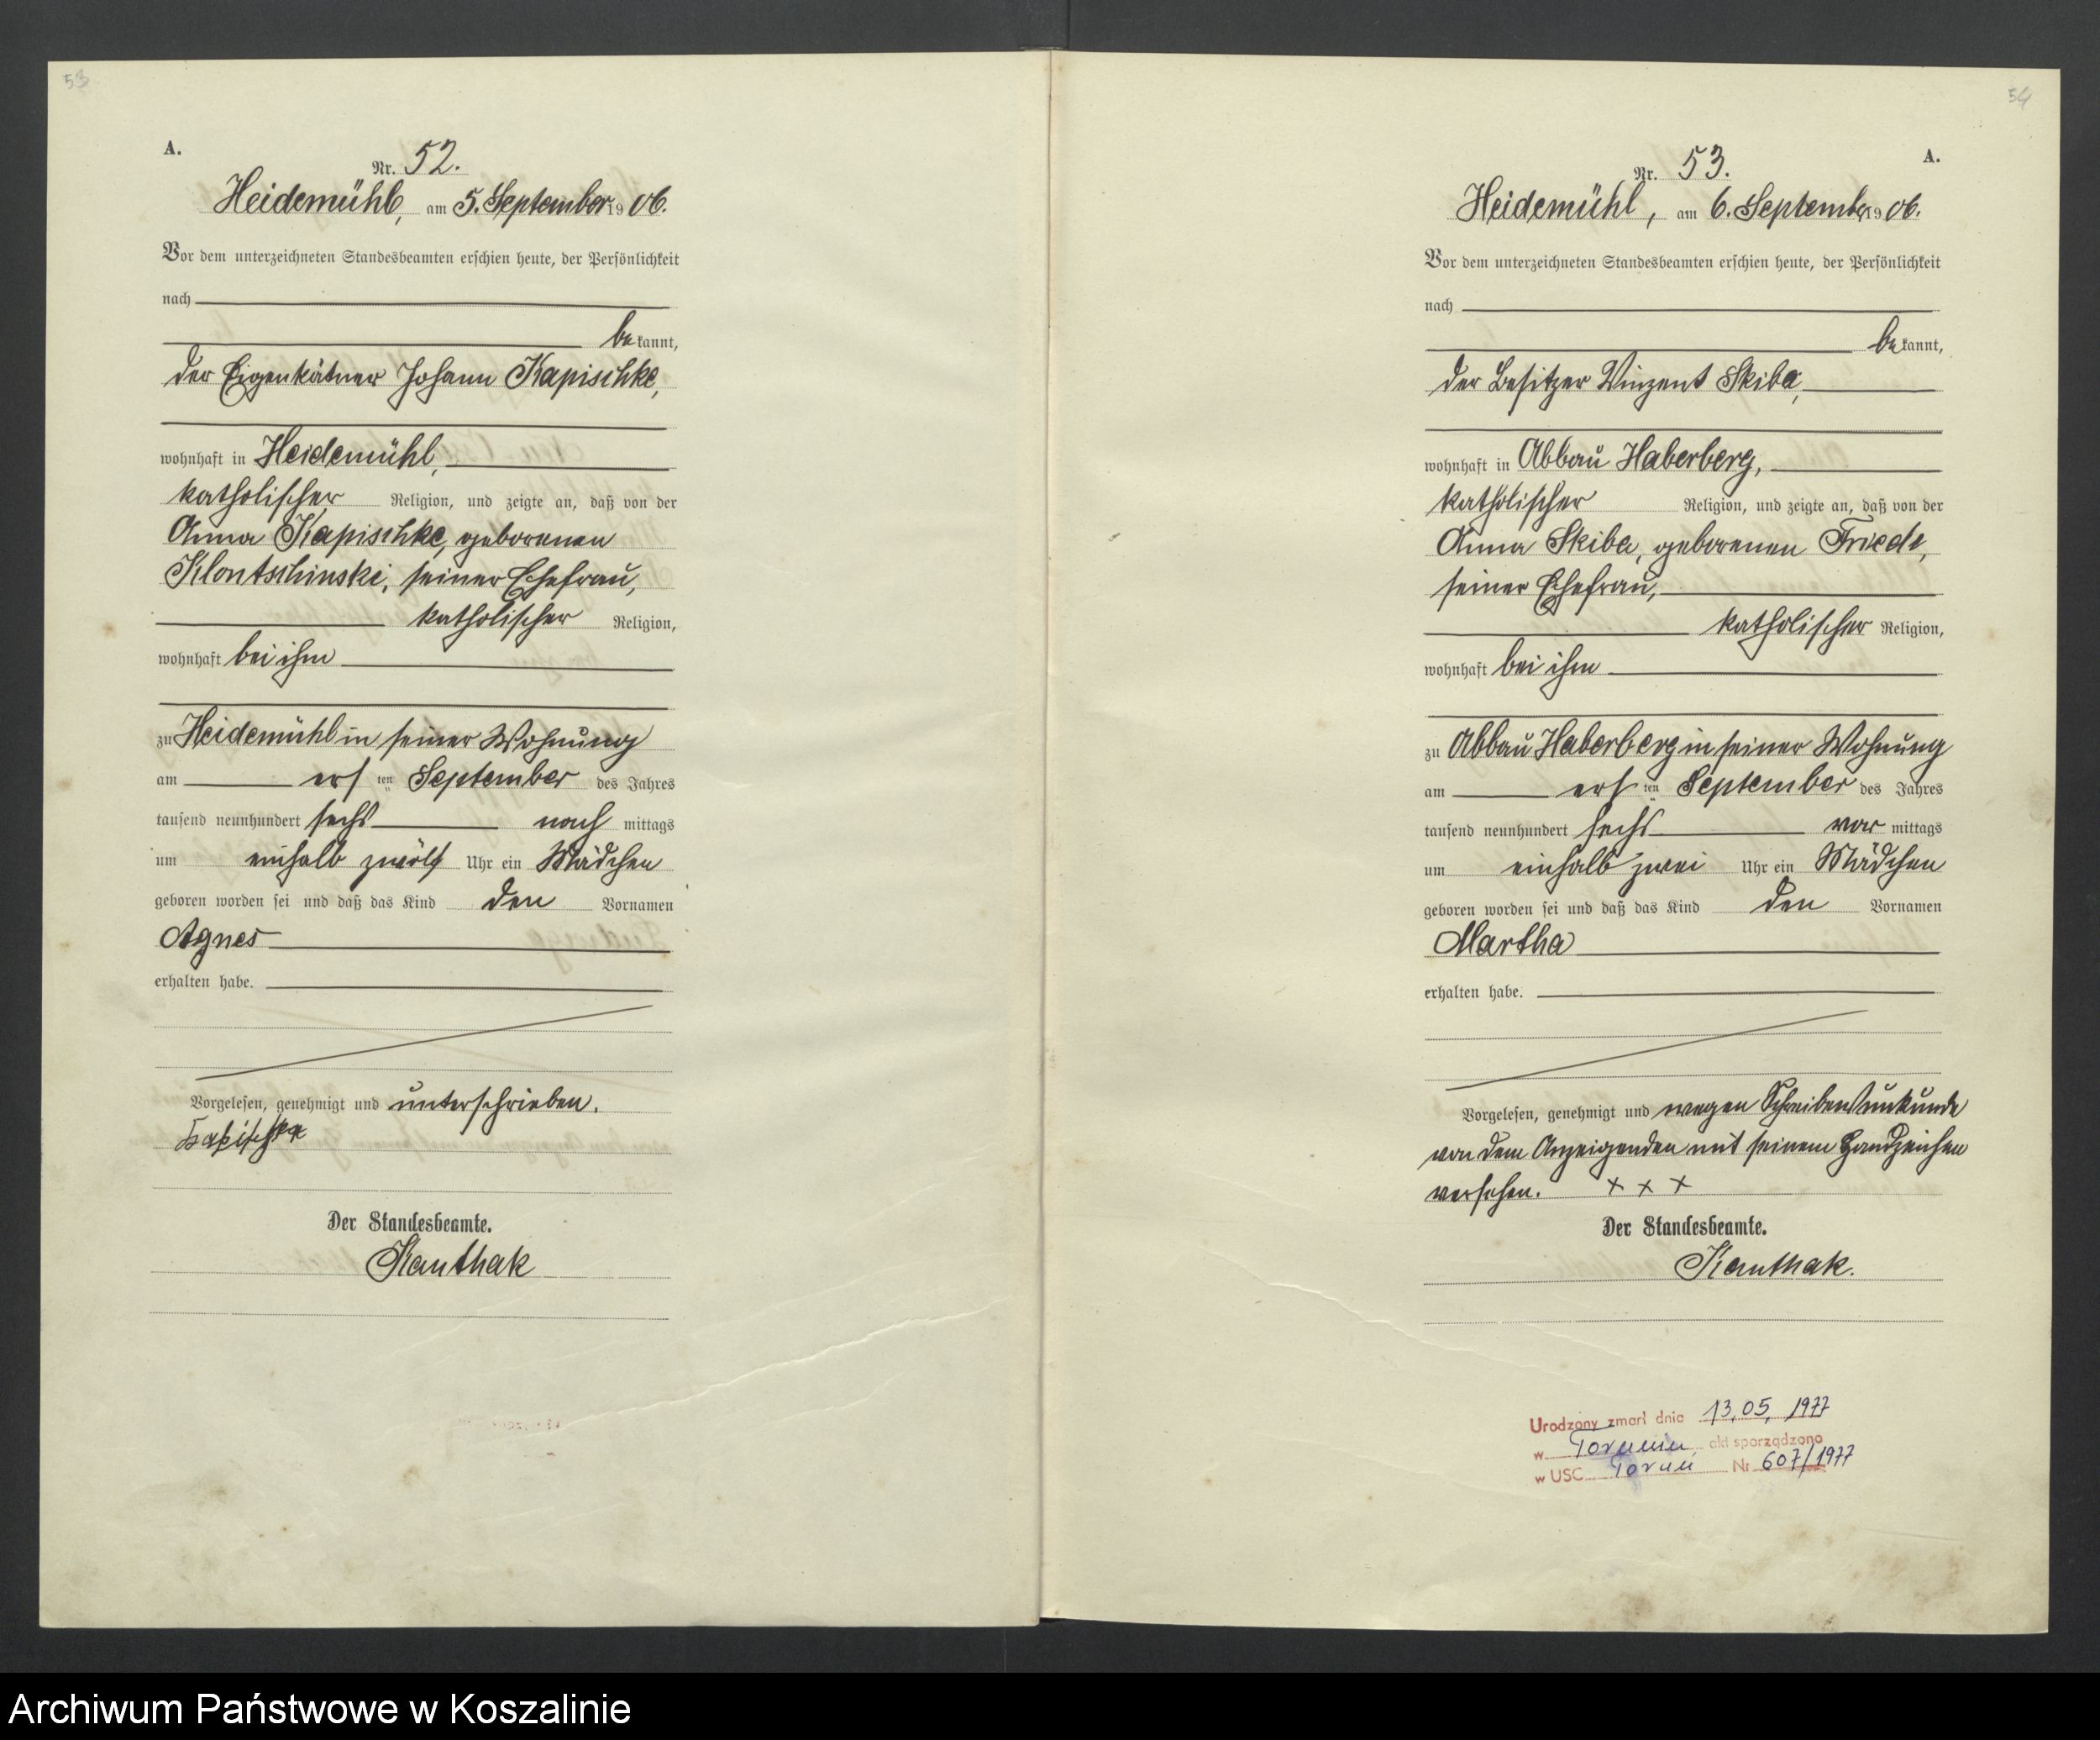 53
A.
Nr. 52.
Heidemühl, am 5. September 1906.
Vor dem unterzeichneten Standesbeamten erschien heute, der Persönlichkeit
nach
bekannt,
der Eigenkätner Johann Kapischke,
wohnhaft in Heidemühl,
katholischer Religion, und zeigte an, daß von der
Anna Kapischke, geborenen
Klontschinski, seiner Ehefrau,
katholischer Religion,
wohnhaft bei ihm
zu Heidemühl in seiner Wohnung
am ersten September des Jahres
tausend neunhundert sechs nachmittags
um einhalb zwölf Uhr ein Mädchen
geboren worden sei und daß das Kind den Vornamen
Agnes
erhalten habe.
Vorgelesen, genehmigt und unterschrieben.
Kapischke
Der Standesbeamte.
Kanthak
54
A.
Nr. 53.
Heidemühl, am 6. September 1906.
Vor dem unterzeichneten Standesbeamten erschien heute, der Persönlichkeit
nach
bekannt,
der Besitzer Vinzent Skiba,
wohnhaft in Abbau Haberberg,
katholischer Religion, und zeigte an, daß von der
Anna Skiba, geborenen Friede,
seiner Ehefrau,
katholischer Religion,
wohnhaft bei ihm
zu Abbau Haberberg in seiner Wohnung
am ersten September des Jahres
tausend neunhundert sechs vormittags
um einhalb zwei Uhr ein Mädchen
geboren worden sei und daß das Kind den Vornamen
Martha
erhalten habe.
Vorgelesen, genehmigt und wegen Schreibensunkunde
von dem Anzeigenden mit seinem Handzeichen
versehen. + + +
Der Standesbeamte.
Kanthak.
Urodzony zmarł dnia 13.05.1977
w Toruniu akt sporządzono
w USC Toruń Nr 607/1977
Archiwum Państwowe w Koszalinie